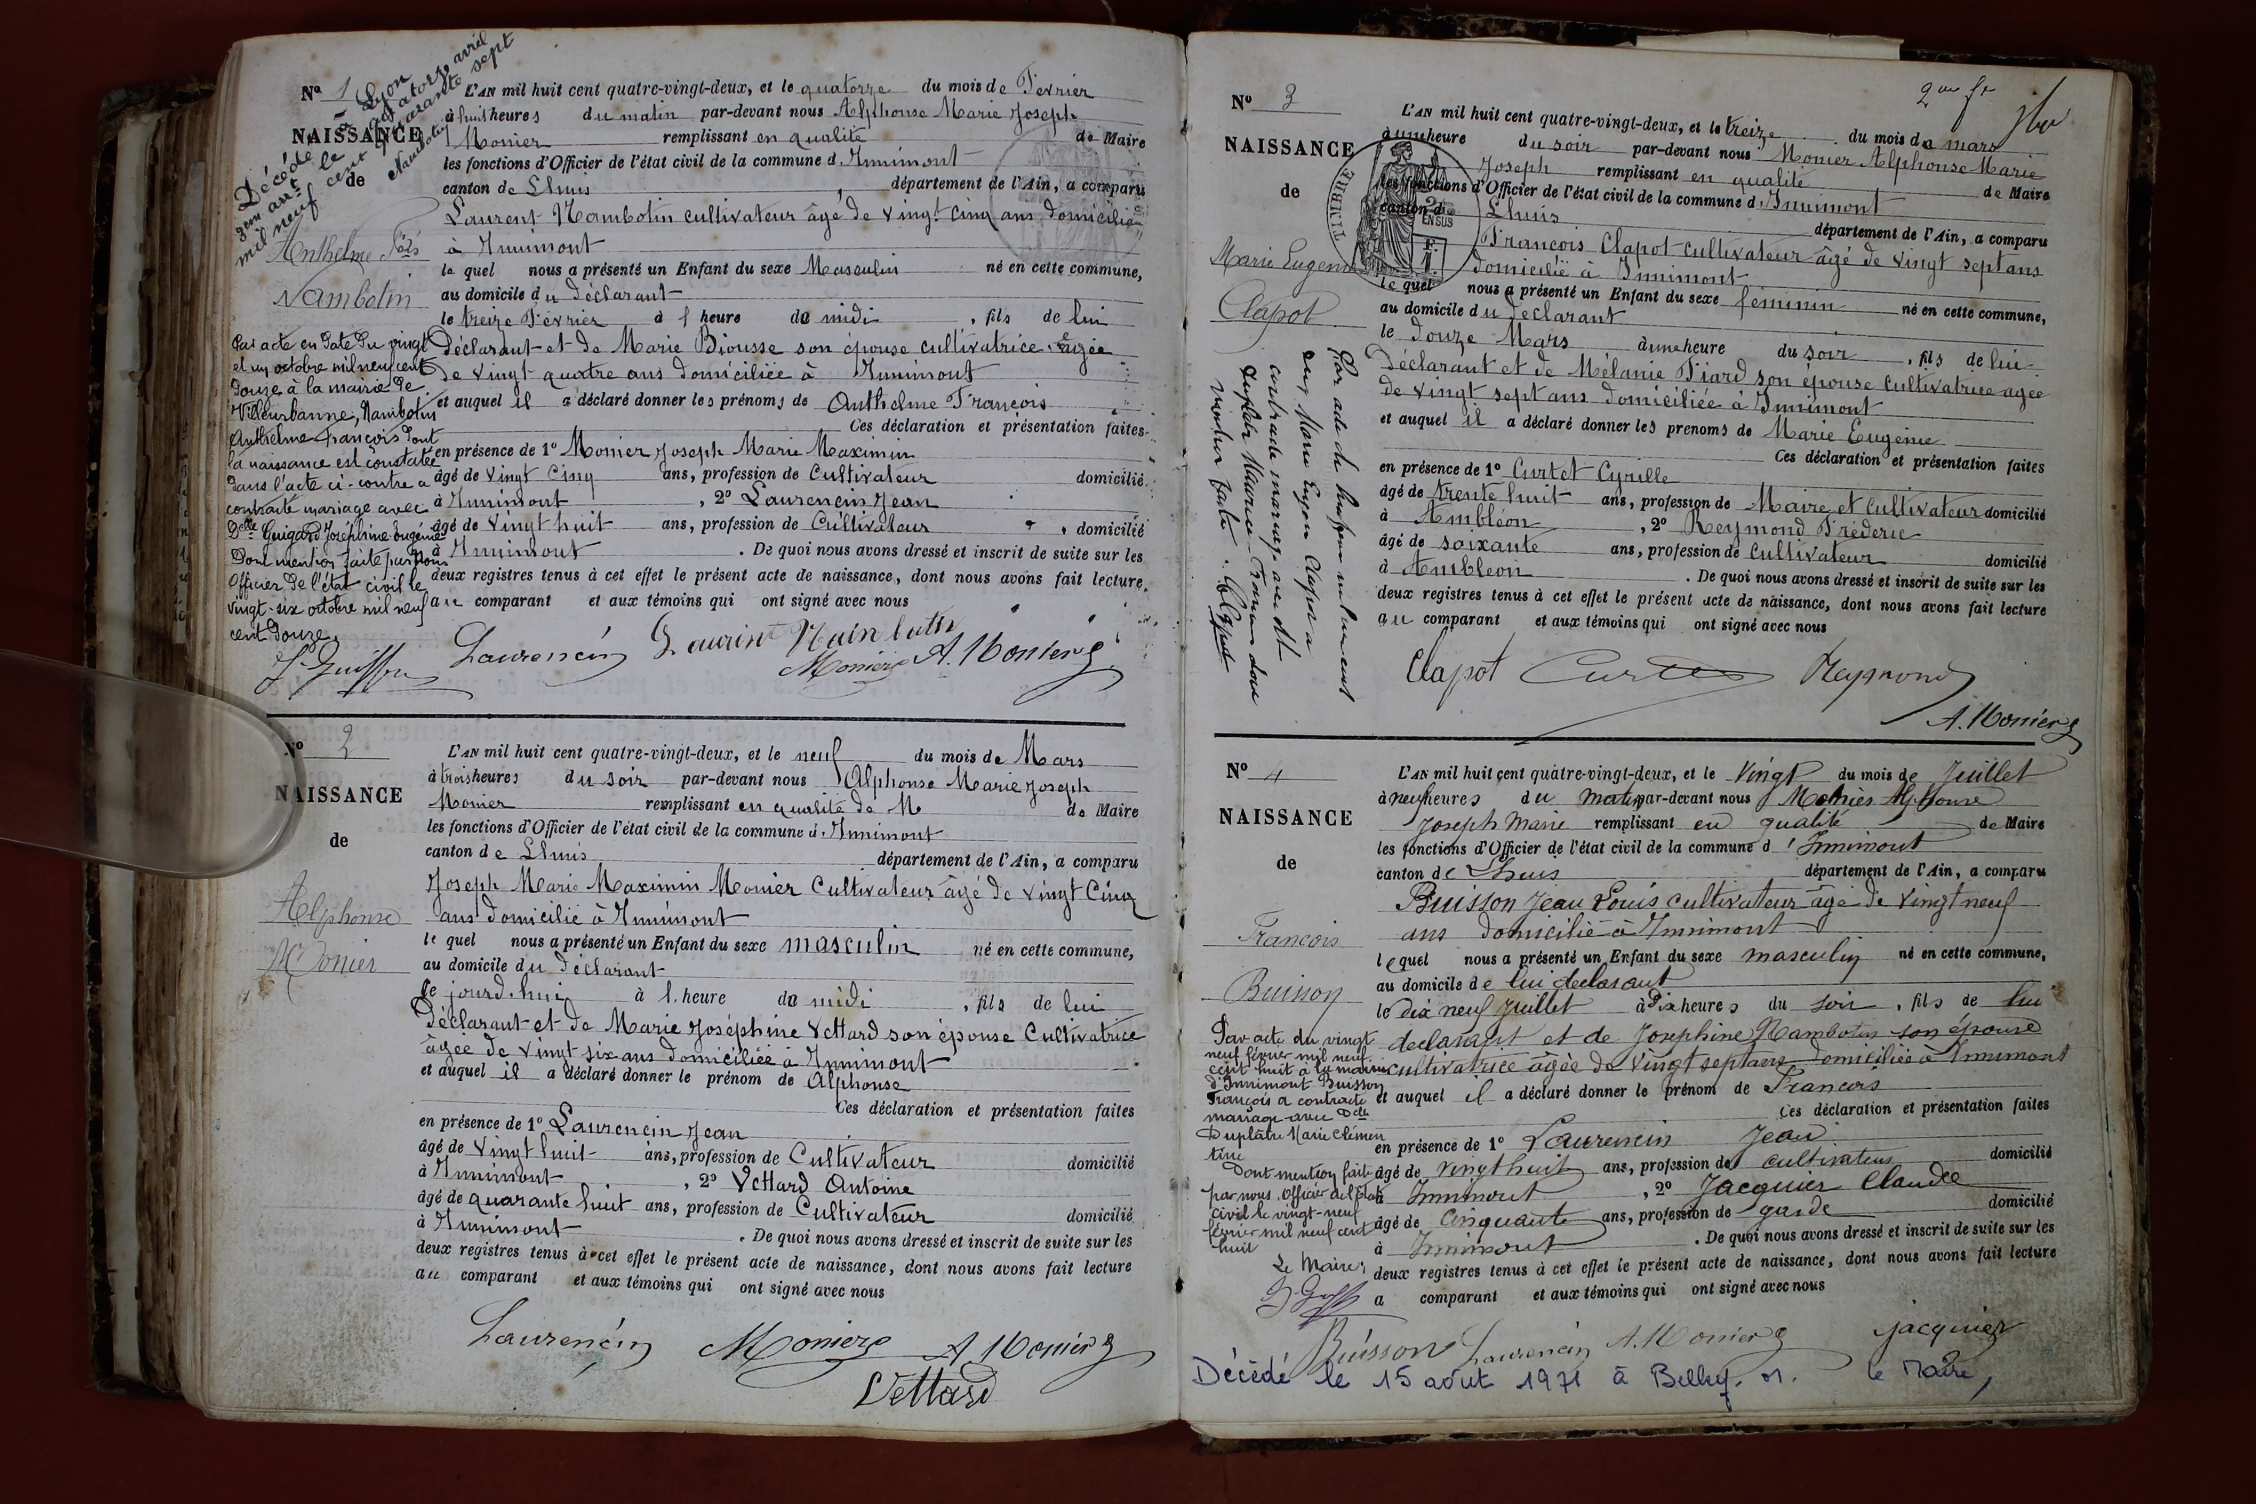 Nº 1
NAISSANCE
de
Anthelme Fois
Nambotin
Décédé à Lyon
3em art le quatorze avril
mil neuf cent quarante sept
Nambotin
L'AN mil huit cent quatre-vingt-deux, et le quatorze du mois de Février
à huit heures du matin par-devant nous Alphonse Marie Joseph
Monier remplissant en qualité de Maire
les fonctions d'Officier de l'état civil de la commune d'Innimont
canton de Lhuis, département de l'Ain, a comparu
Laurent Nambotin cultivateur âgé de vingt cinq ans domicilié
à Innimont
le quel nous a présenté un Enfant du sexe Masculin né en cette commune,
au domicile du déclarant
le treize Février à 1 heure de midi, fils de lui
déclarant et de Marie Biousse son épouse cultivatrice âgée
de vingt quatre ans domiciliée à Innimont
et auquel il a déclaré donner les prénoms de Anthelme François
Ces déclaration et présentation faites
en présence de 1º Monier Joseph Marie Maximin
âgé de vingt cinq ans, profession de Cultivateur domicilié
à Innimont, 2º Laurencin Jean
âgé de vingt huit ans, profession de Cultivateur, domicilié
à Innimont. De quoi nous avons dressé et inscrit de suite sur les
deux registres tenus à cet effet le présent acte de naissance, dont nous avons fait lecture,
au comparant et aux témoins qui ont signé avec nous
Par acte en date du vingt
et un octobre mil neuf cent
douze à la mairie de
Villeurbanne, Nambotin
Anthelme François dont
la naissance est constatée
dans l'acte ci-contre a
contracté mariage avec
Delle Guigard Joséphine Eugénie
Dont mention faite par nous
Officier de l'état civil le
vingt-six octobre mil neuf
cent douze
Laurencin Laurint Nambotin
Monier A. Monier
Nº 2
NAISSANCE
de
Alphonse
Monier
L'AN mil huit cent quatre-vingt-deux, et le neuf du mois de Mars
à trois heures du soir par-devant nous Alphonse Marie Joseph
Monier remplissant en qualité de M de Maire
les fonctions d'Officier de l'état civil de la commune d'Innimont
canton de Lhuis département de l'Ain, a comparu
Joseph Marie Maximin Monier Cultivateur âgé de vingt cinq
ans domicilié à Innimont
le quel nous a présenté un Enfant du sexe masculin né en cette commune,
au domicile du déclarant
le jourd'hui à 1 heure de midi, fils de lui
déclarant et de Marie Joséphine Vettard son épouse Cultivatrice
âgée de vingt six ans domiciliée à Innimont
et auquel il a déclaré donner le prénom de Alphonse
Ces déclaration et présentation faites
en présence de 1º Laurencin Jean
âgé de vingt huit ans, profession de Cultivateur domicilié
à Innimont, 2º Vettard Antoine
âgé de quarante huit ans, profession de Cultivateur domicilié
à Innimont. De quoi nous avons dressé et inscrit de suite sur les
deux registres tenus à cet effet le présent acte de naissance, dont nous avons fait lecture
au comparant et aux témoins qui ont signé avec nous
Laurencin Monier A. Monier
Vettard
Nº 3
NAISSANCE
de
Marie Eugénie
Clapot
TIMBRE
2/10 EN SUS
F.
1.
L'AN mil huit cent quatre-vingt-deux, et le treize du mois de mars
à une heure du soir par-devant nous Monier Alphonse Marie
Joseph remplissant en qualité de Maire
les fonctions d'Officier de l'état civil de la commune d'Innimont
canton de Lhuis département de l'Ain, a comparu
François Clapot cultivateur âgé de vingt sept ans
domicilié à Innimont
le quel nous a présenté un Enfant du sexe féminin né en cette commune,
au domicile du déclarant
le douze Mars à une heure du soir, fils de lui
déclarant et de Mélanie Piard son épouse cultivatrice agée
de vingt sept ans domiciliée à Innimont
et auquel il a déclaré donner les prenoms de Marie Eugénie
Ces déclaration et présentation faites
en présence de 1º Curtet Cyrille
âgé de trente huit ans, profession de Maire et cultivateur domicilié
à Ambléon, 2º Reymond Fréderic
âgé de soixante ans, profession de cultivateur domicilié
à Ambléon. De quoi nous avons dressé et inscrit de suite sur les
deux registres tenus à cet effet le présent acte de naissance, dont nous avons fait lecture
au comparant et aux témoins qui ont signé avec nous
Clapot Curtet Reymond
A. Monier
Nº 4
NAISSANCE
de
François
Buisson
L'AN mil huit cent quatre-vingt-deux, et le Vingt du mois de Juillet
à neuf heures du matin par-devant nous Monier Alphonse
Joseph Marie remplissant en qualité de Maire
les fonctions d'Officier de l'état civil de la commune d'Innimont
canton de Lhuis département de l'Ain, a comparu
Buisson Jean Louis cultivateur âgé de vingt neuf
ans domicilié à Innimont
lequel nous a présenté un Enfant du sexe masculin né en cette commune,
au domicile de lui declarant
le dix neuf Juillet à Dix heures du soir, fils de lui
declarant et de Josephine Nambotin son épouse
cultivatrice âgée de vingt sept ans domiciliée à Innimont
et auquel il a déclaré donner le prénom de François
Ces déclaration et présentation faites
en présence de 1º Laurencin Jean
âgé de vingt huit ans, profession de cultivateur domicilié
à Innimont, 2º Jacquier Claude
âgé de cinquante ans, profession de garde domicilié
à Innimont. De quoi nous avons dressé et inscrit de suite sur les
deux registres tenus à cet effet le présent acte de naissance, dont nous avons fait lecture
a comparant et aux témoins qui ont signé avec nous
Par acte du vingt
neuf février mil neuf
cent huit à la mairie
d'Innimont Buisson
François a contracté
mariage avec Delle
Duplâtre Marie Clémen
tine
Dont mention faite
par nous Officier de l'Etat
civil le vingt-neuf
février mil neuf cent
huit
Le Maire,
Buisson Laurencin A. Monier Jacquier
Décédé le 15 août 1971 à Belley. le Maire,